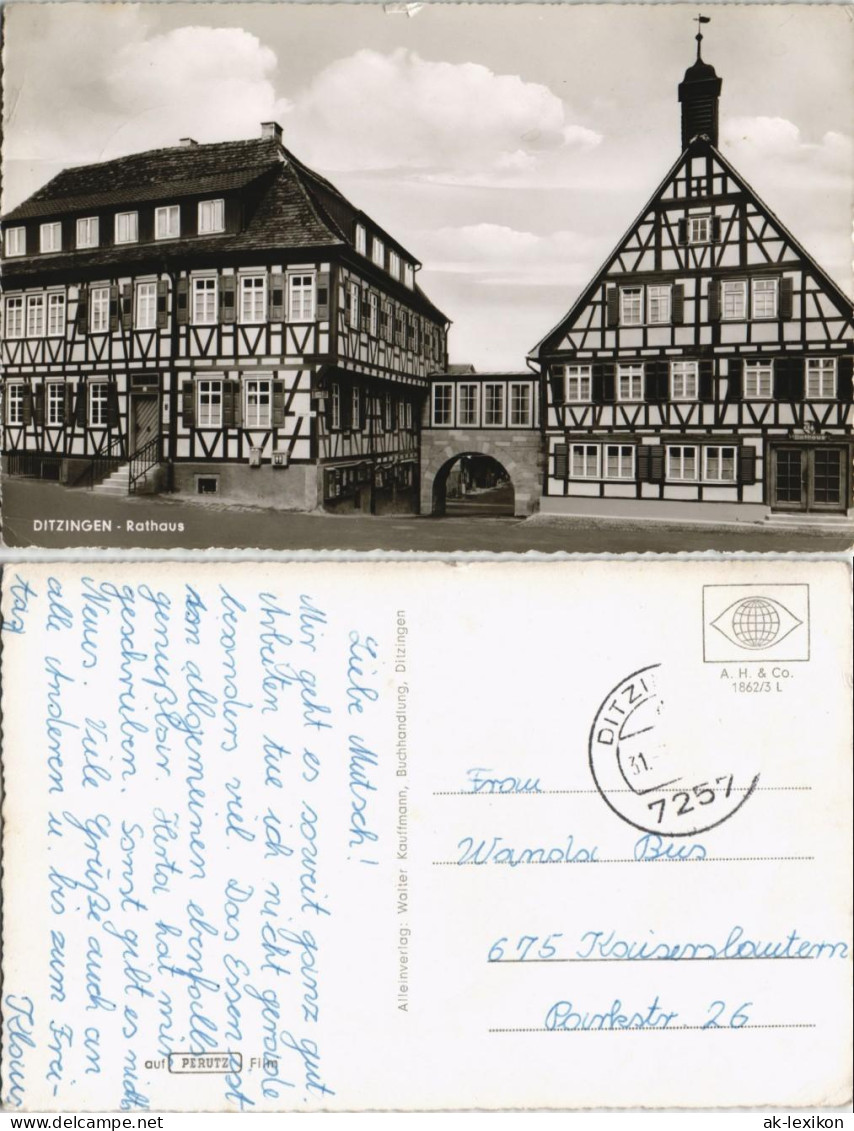 Rathaus
DITZINGEN - Rathaus
Liebe Mutsch!
Mir geht es soweit ganz gut.
Arbeiten tue ich nicht gerade
besonders viel. Das Essen ist
im allgemeinen ebenfalls
genußbar. Herta hat mir
geschrieben. Sonst gibt es nichts
Neues. Viele Grüße auch an
alle Anderen u. bis zum Frei-
tag
Klaus
Alleinverlag: Walter Kauffmann, Buchhandlung, Ditzingen
auf PERUTZ Film
A. H. & Co.
1862/3 L
DITZI
31.
7257
Frau
Wanda Bus
675 Kaiserslautern
Parkstr. 26
ak-lexikon.com